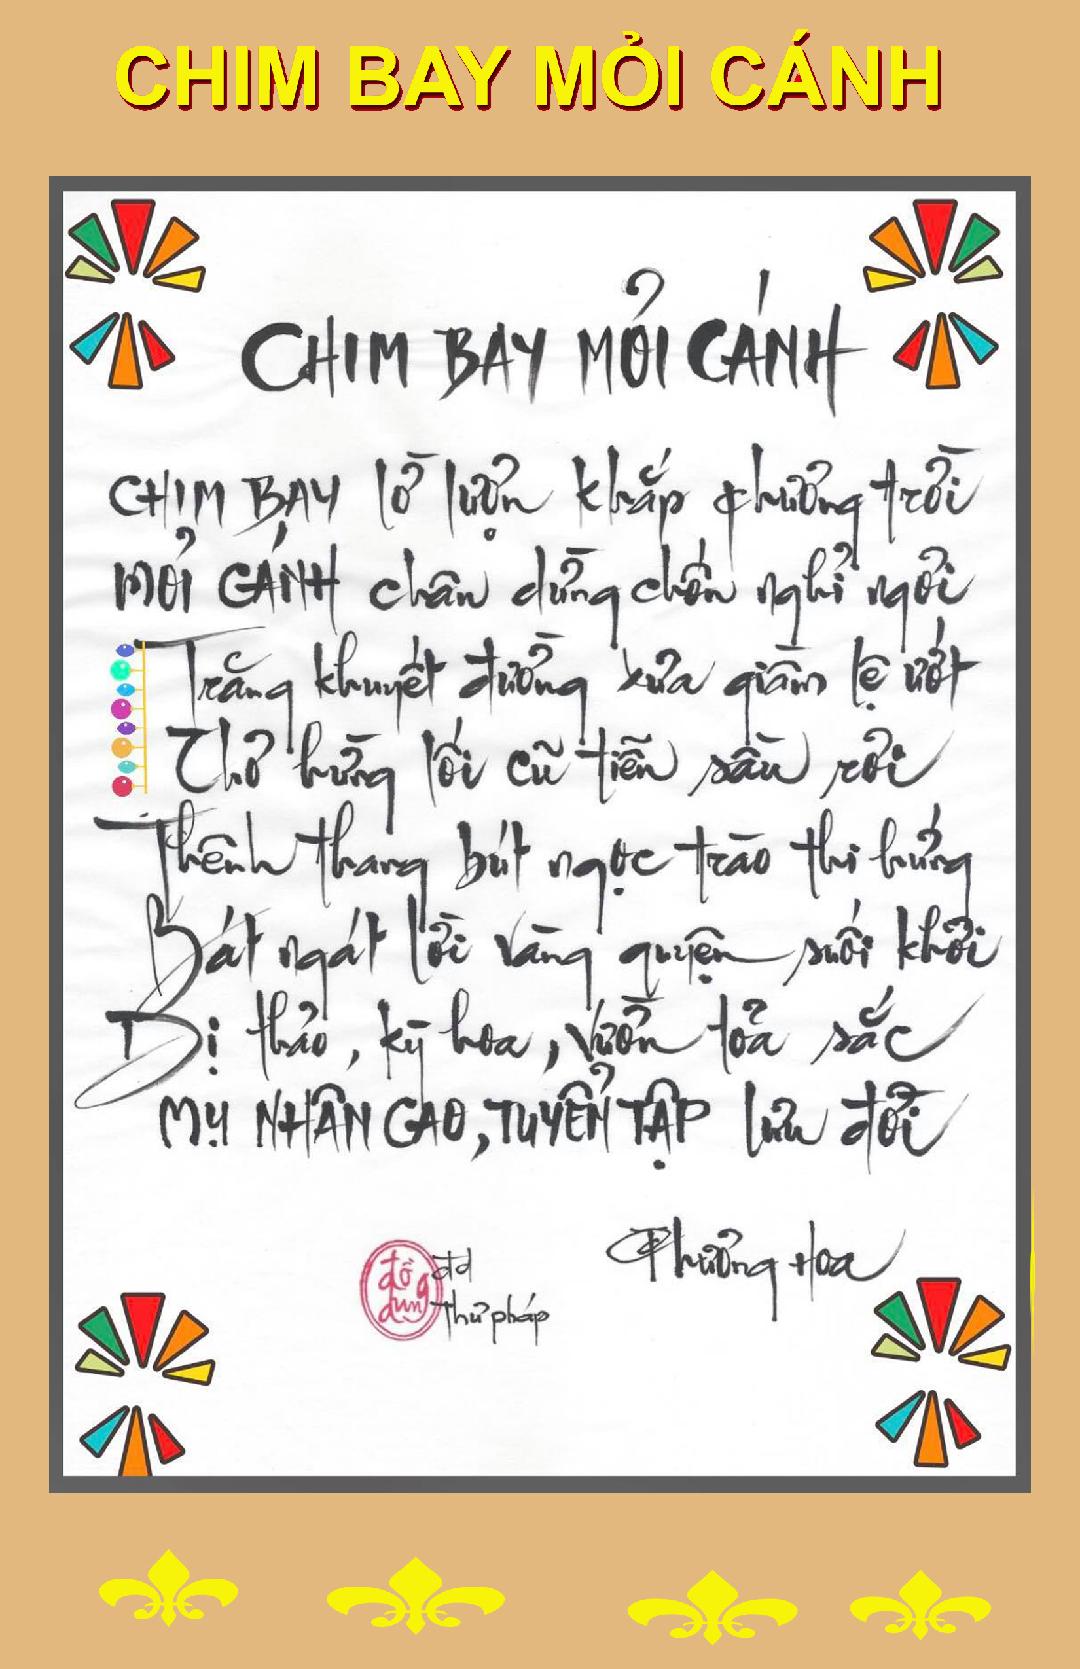 CHIM BAY MỎI CÁNH
CHIM BAY MỎI CÁNH
CHIM BAY lờ lượn khắp phương trời
MỎI CÁNH chân dừng chốn nghỉ ngơi
Trăng khuyết đường xưa giầm lệ ướt
Thơ hừng lối cũ tiễn sầu rơi
Thênh thang bút ngọc trào thi hứng
Bát ngát lời vàng quyện suối khơi
Dị thảo, kỳ hoa, vườn tỏa sắc
MỴ NHÂN CAO, TUYỂN TẬP lưu đời
Phương Hoa
đồ dung
đd
thư pháp